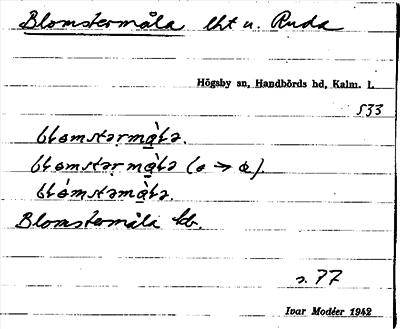 Blomstermåla lht u. Ruda
Högsby sn, Handbörds hd, Kalm. l.
533
blomstərmɑ̀lə.
blomstərmɑ̀lə (o → ɑ).
blómstəmɑ̀lə.
Blomstermåla kb.
s. 77
Ivar Modéer 1942